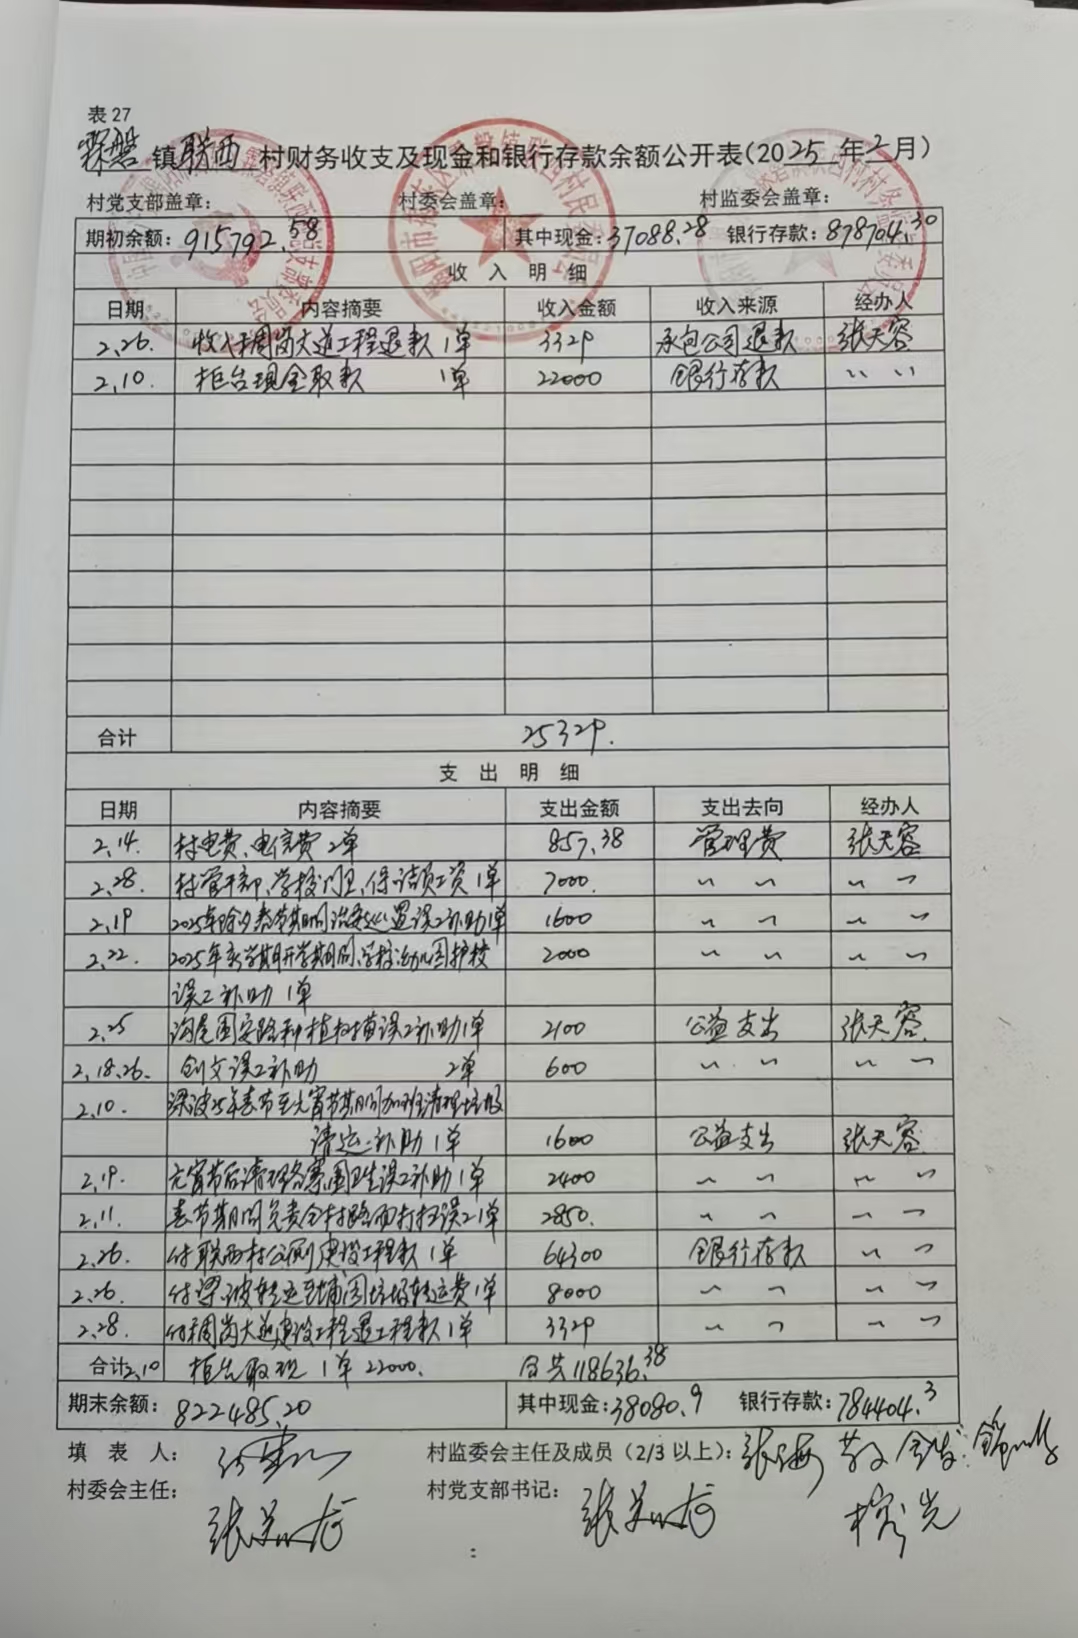 表 27
霖磐镇联西村财务收支及现金和银行存款余额公开表(2025年2月)
村党支部盖章: 村委会盖章: 村监委会盖章:
期初余额: 915792.58 其中现金: 37088.28 银行存款: 878704.30
收 入 明 细
日期 内容摘要 收入金额 收入来源 经办人
2.26. 收入稠岗大道工程退款 1单 3329 承包公司退款 张天容
2.10. 柜台现金取款 1单 22000 银行存款 〃 〃
合计 25329.
支 出 明 细
日期 内容摘要 支出金额 支出去向 经办人
2.14. 村电费、电信费 2单 857.38 管理费 张天容
2.28. 村管干部、学校门卫、保洁员工资 1单 7000. 〃 〃 〃 〃
2.19 2025年除夕春节期间治安巡逻误工补助1单 1600 〃 〃 〃 〃
2.22. 2025年新学期开学期间、学校幼儿园护校 2000 〃 〃 〃 〃
误工补助 1单
2.25 沟尾围安路种植扫描误工补助1单 2100 公益支出 张天容
2.18.26. 创文误工补助 2单 600 〃 〃 〃 〃
2.10. 梁波25年春节至元宵节期间加班清理垃圾
清运补助 1单 1600 公益支出 张天容
2.19. 元宵节后清理各寨围卫生误工补助1单 2400 〃 〃 〃 〃
2.11. 春节期间负责全村路面打扫误工1单 2850. 〃 〃 〃 〃
2.26. 付联西村公厕建设工程款 1单 64300 银行存款 〃 〃
2.26. 付梁波转运至埔围垃圾转运费1单 8000 〃 〃 〃 〃
2.28. 付稠岗大道建设工程退工程款1单 3329 〃 〃 〃 〃
合计 2.10 柜台取现 1单 22000. 合共118636.38
期末余额: 822485.20 其中现金: 38080.9 银行存款: 784404.3
填 表 人: 村监委会主任及成员(2/3 以上):
村委会主任: 村党支部书记: